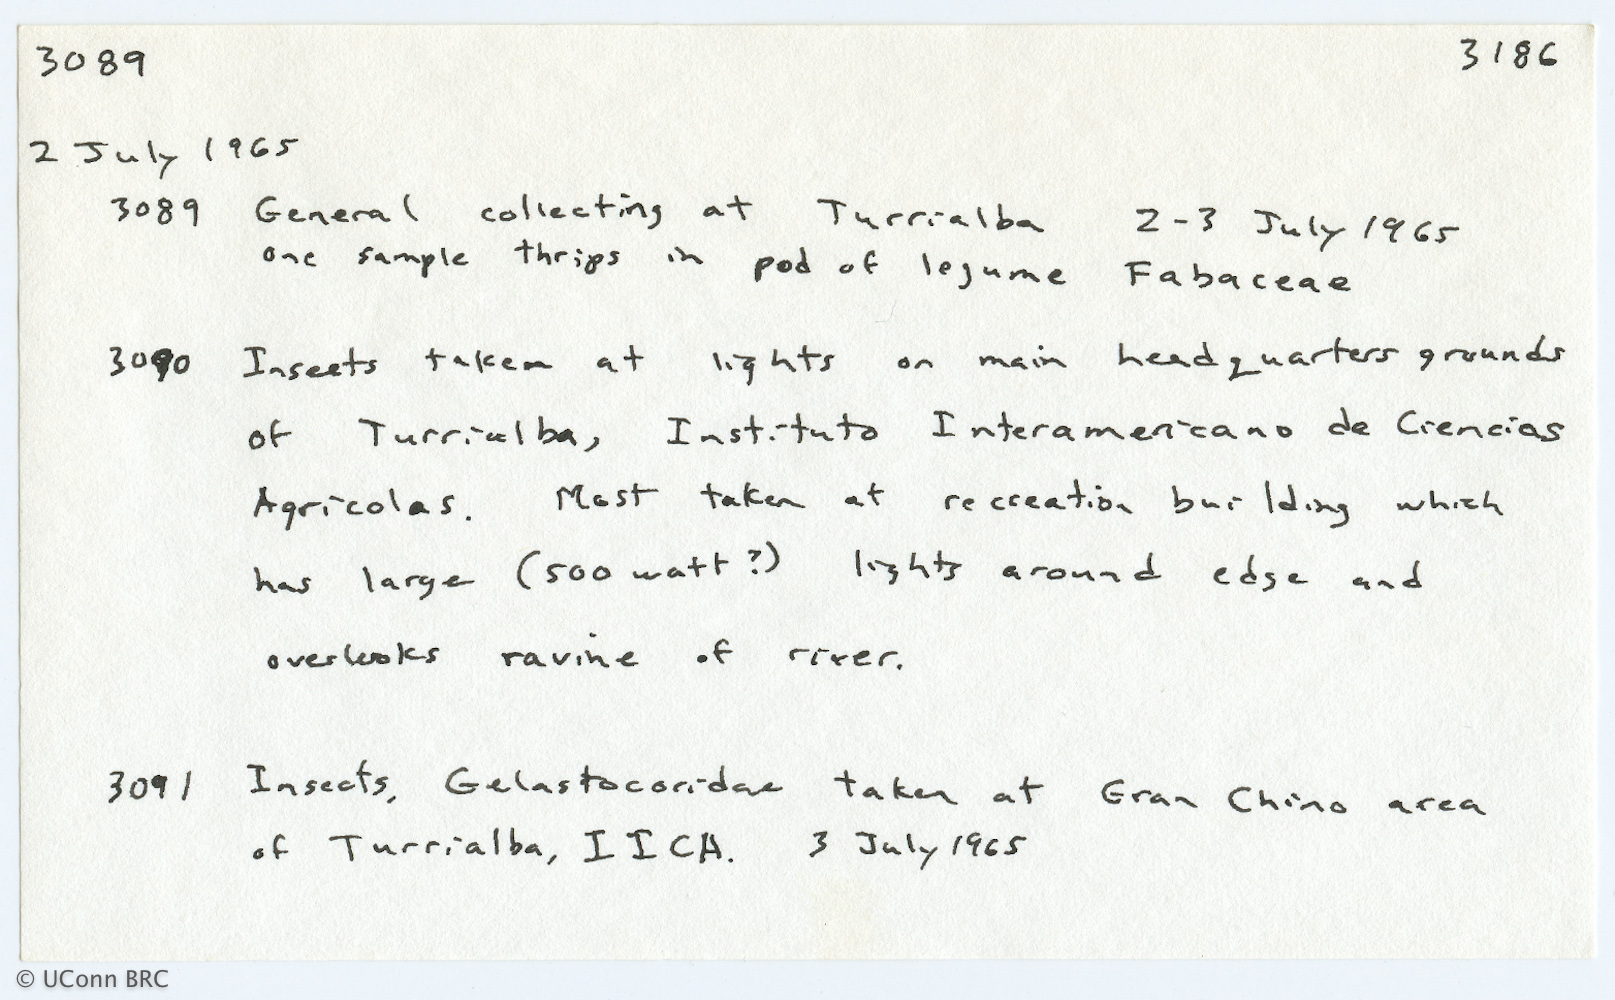 3089 3186
2 July 1965
3089 General collecting at Turrialba 2-3 July 1965
one sample thrips in pod of legume Fabaceae
3090 Insects taken at lights on main headquarters grounds
of Turrialba, Instituto Interamericano de Ciencias
Agricolas. Most taken at recreation building which
has large (500 watt?) lights around edge and
overlooks ravine of river.
3091 Insects, Gelastocoridae taken at Gran Chino area
of Turrialba, IICA. 3 July 1965
© UConn BRC